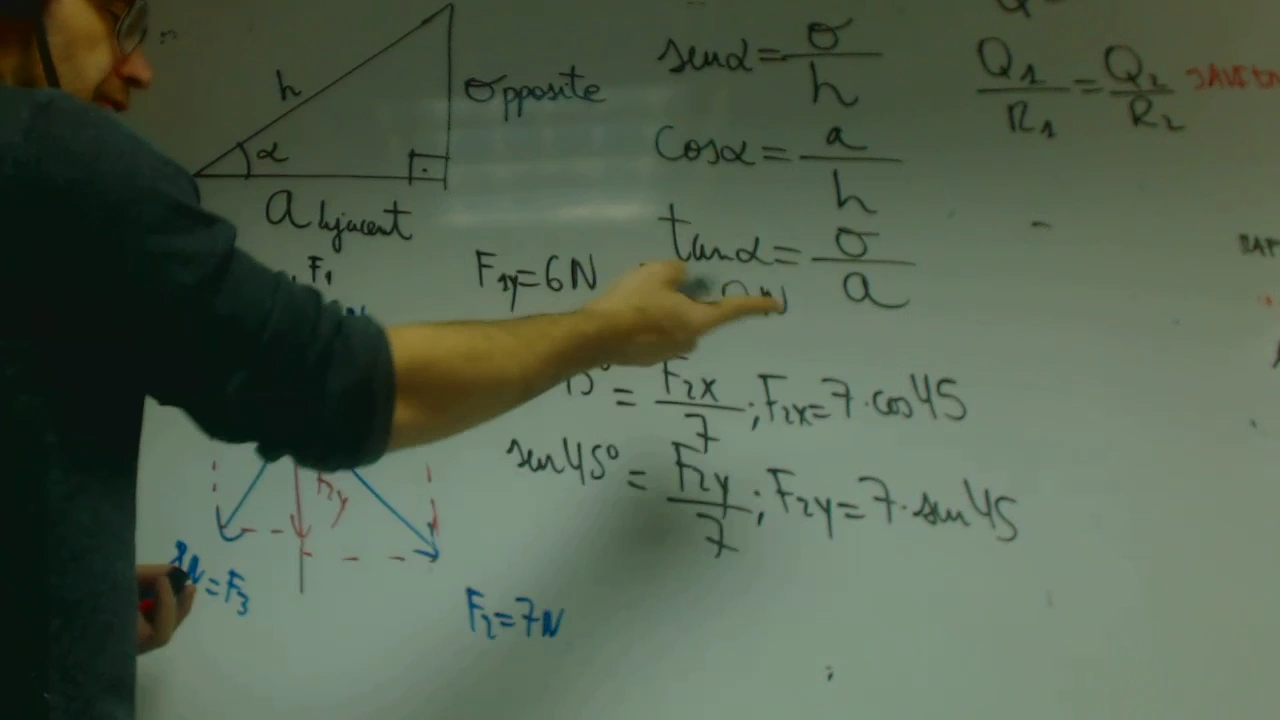 h
Opposite
α
Adjacent
senα = o/h
cosα = a/h
tanα = o/a
Q1/R1 = Q2/R2
F1
F1y=6N
= F2x/7 ; F2x=7·cos45
sen45° = F2y/7 ; F2y=7·sen45
=F3
F2=7N